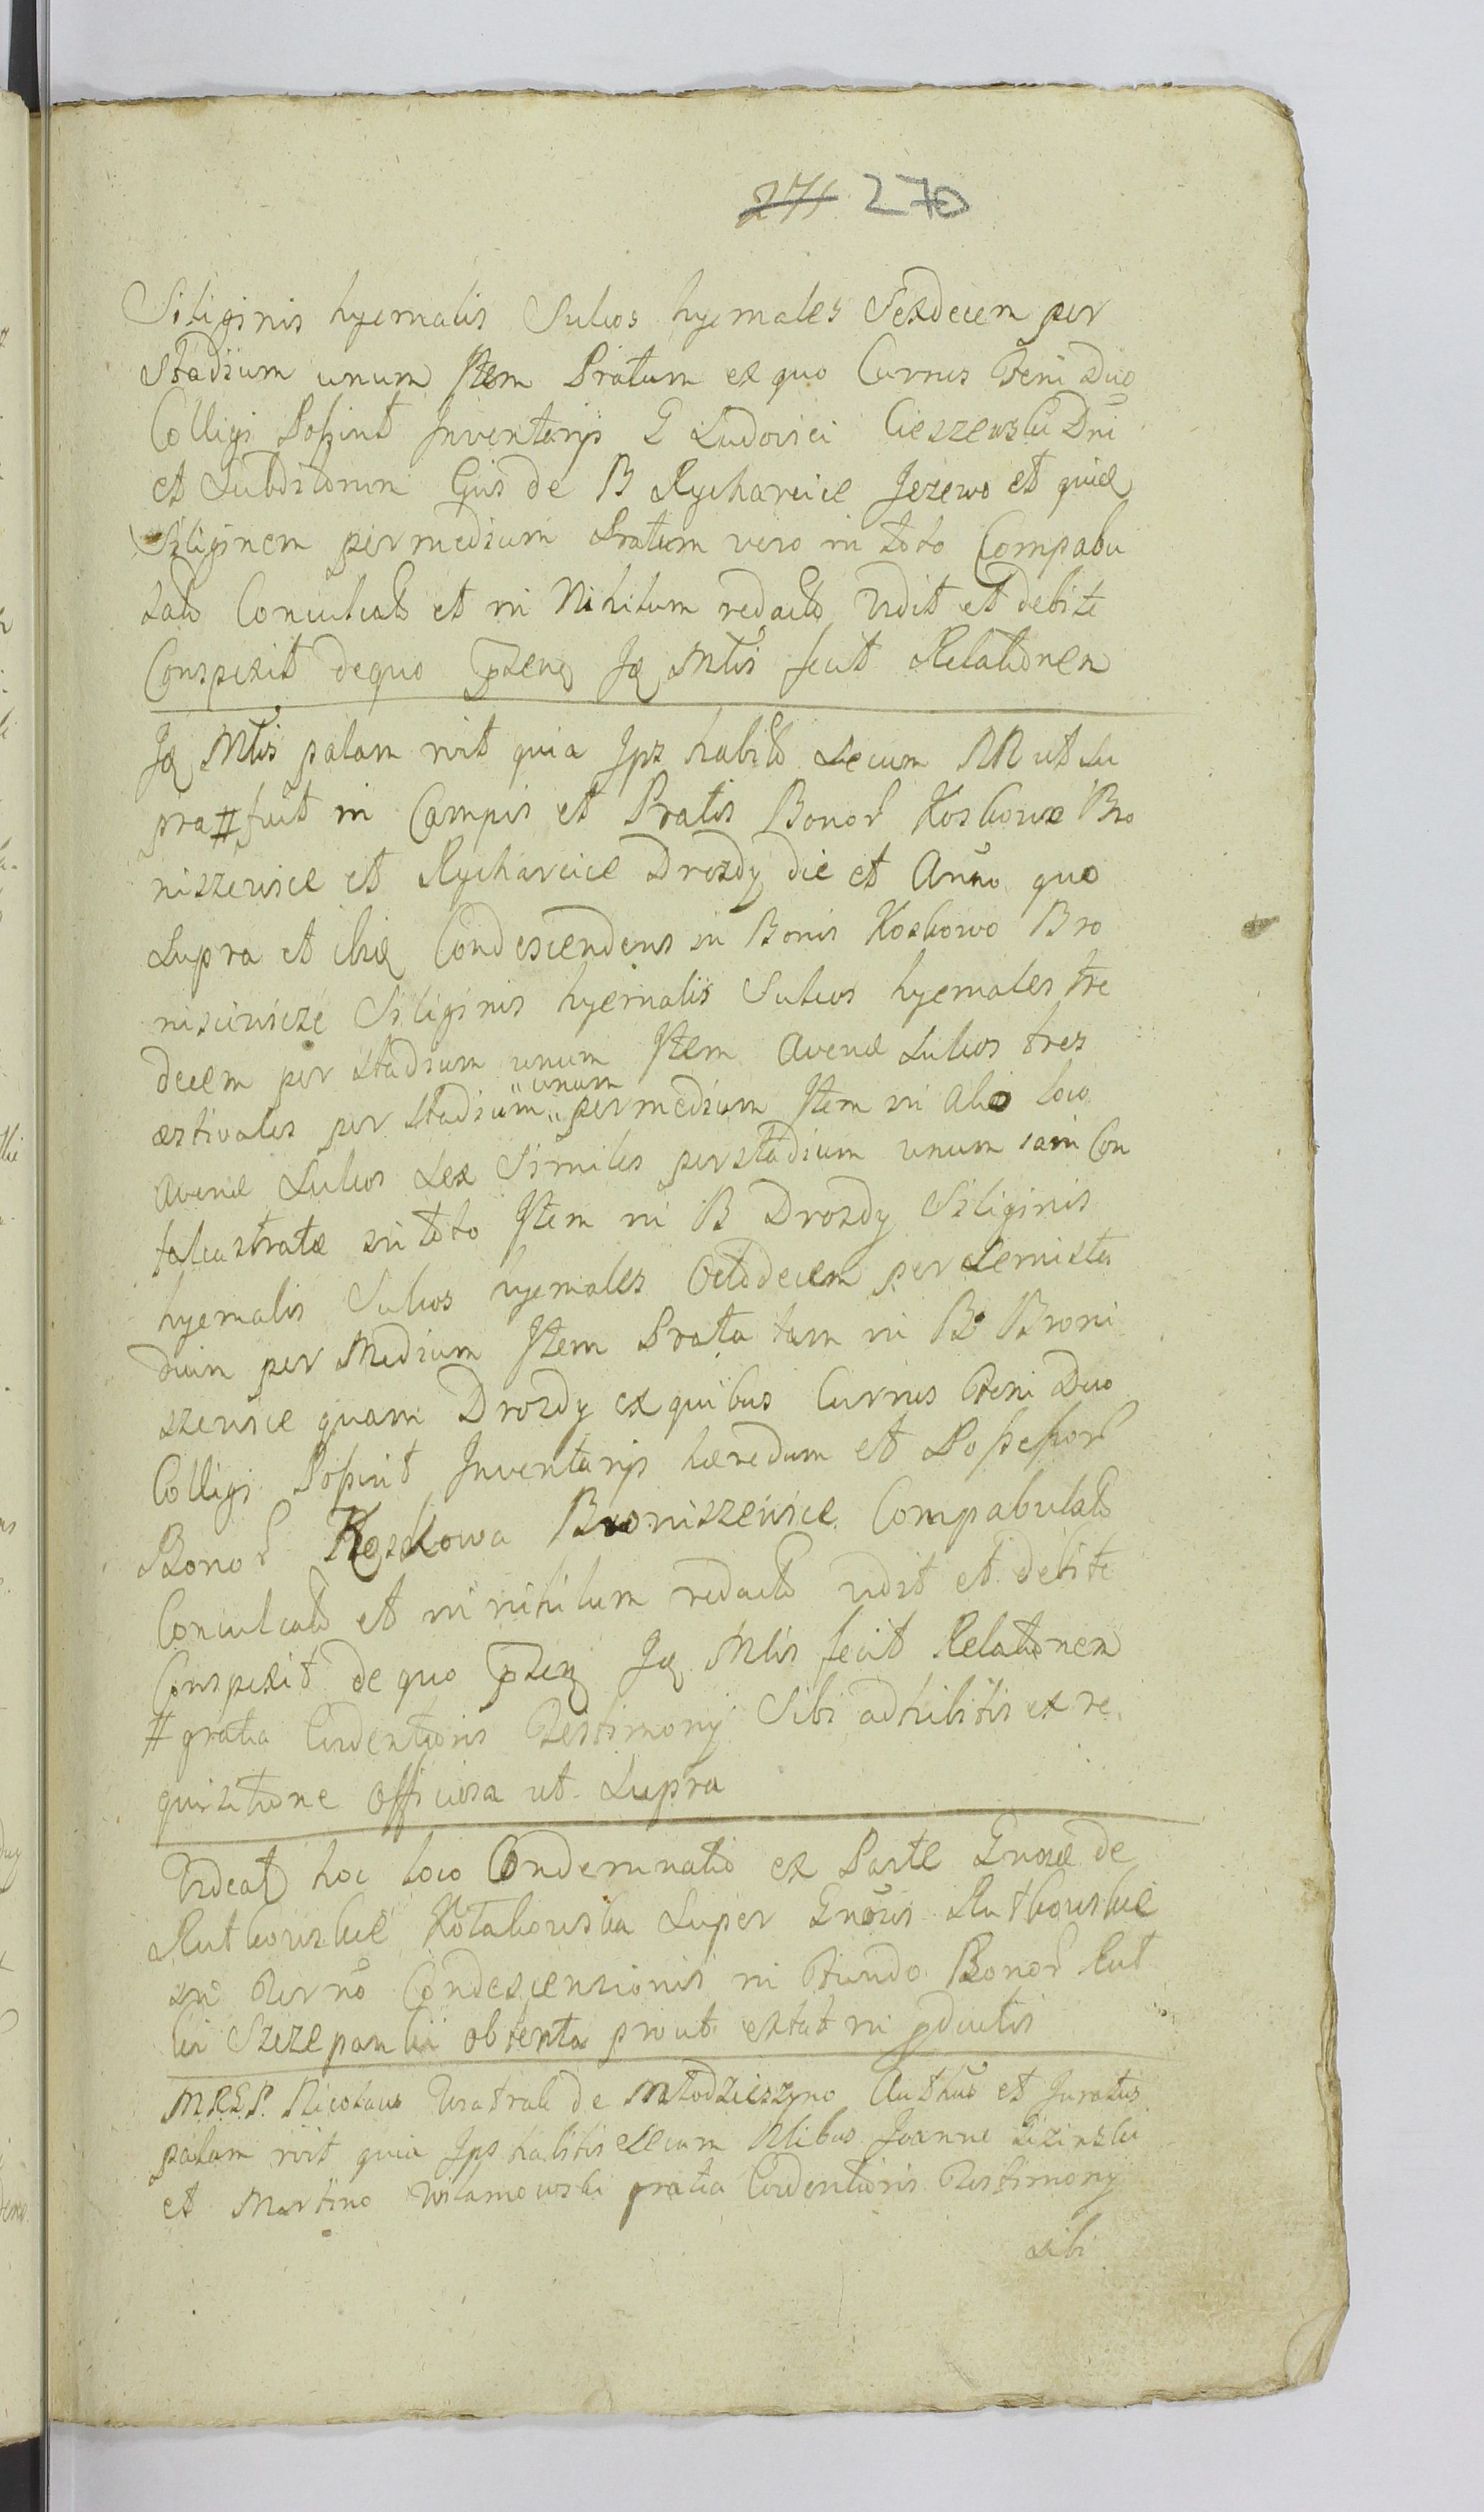 271 270
Siliginis hyemalis Sulcos hyemales Sexdecem per
Stadium unum Item Pratum ex quo Currus Feni Duo
Colligi Possint Inventarys G Ludovici Cieszewski Dni
et Subditorum Eius de B Rycharcice Jezewo et quidē
Siliginem per medium Pratum vero in toto Compabu
lato Conculcato et in Nihilum redacto vidit et debite
Conspexit de quo Idē Mtlis fecit Relationem
Idē Mtlis palam rvit quia Ips habito secum NN ut Su
pra # fuit in Campis et Pratis Bonor Koskowa Bro
niszewice et Rycharcice Drozdy die et Anno quo
Supra et ibidē Condescendens in Bonis Koskowo Bro
niscewicze Siliginis hyemalis Sulcos hyemales tre
decem per stadium unum Item Avenæ Sulcos tres
æstivales per Stadium unum per medium Item in alio loco
avenæ Sulcos Sex Similes per stadium unum iam Con
falcastratæ in toto Item in B Drozdy Siliginis
hyemalis Sulcos hyemales Octodecem per Semista
dium per Medium Item Prata tam in B Broni
szewice quam Drozdy ex quibus Currus Feni Duo
Colligi Possint Inventarys hæredum et Possessor
Bonor Koskowa Broniszewice Compabulato
Conculcato et in nihilum redacto vidit et debite
Conspexit de quo Idē Mtlis fecit Relationem
# gratia Evidentioris Testimony Sibi adhibitis ex re
quisitione Officiosa ut Supra
Videat hoc loco Condemnatio ex Parte Gnosæ de
Rutkowskie Kotakowska Super Gnosis Rutkowskie
in Termno Condescensionis in Fundo Bonor Rut
ki Szczepanki obtenta prout extat in pductis
M.R.G.P. Nicolaus Watrak de Młodzieszyno Authus et Juratus
palam rvit quia Ips habitis Secum Nlibus Joanne Lizinski
et Martino Wilamowski gratia Evidentioris Testimony
sibi